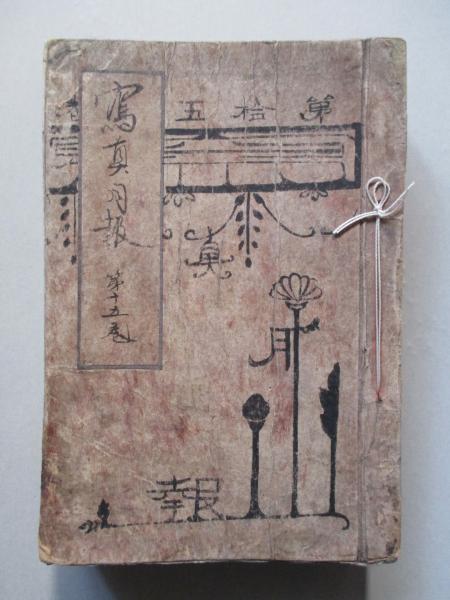 寫真月報
第十五卷
第拾五
真
月
報